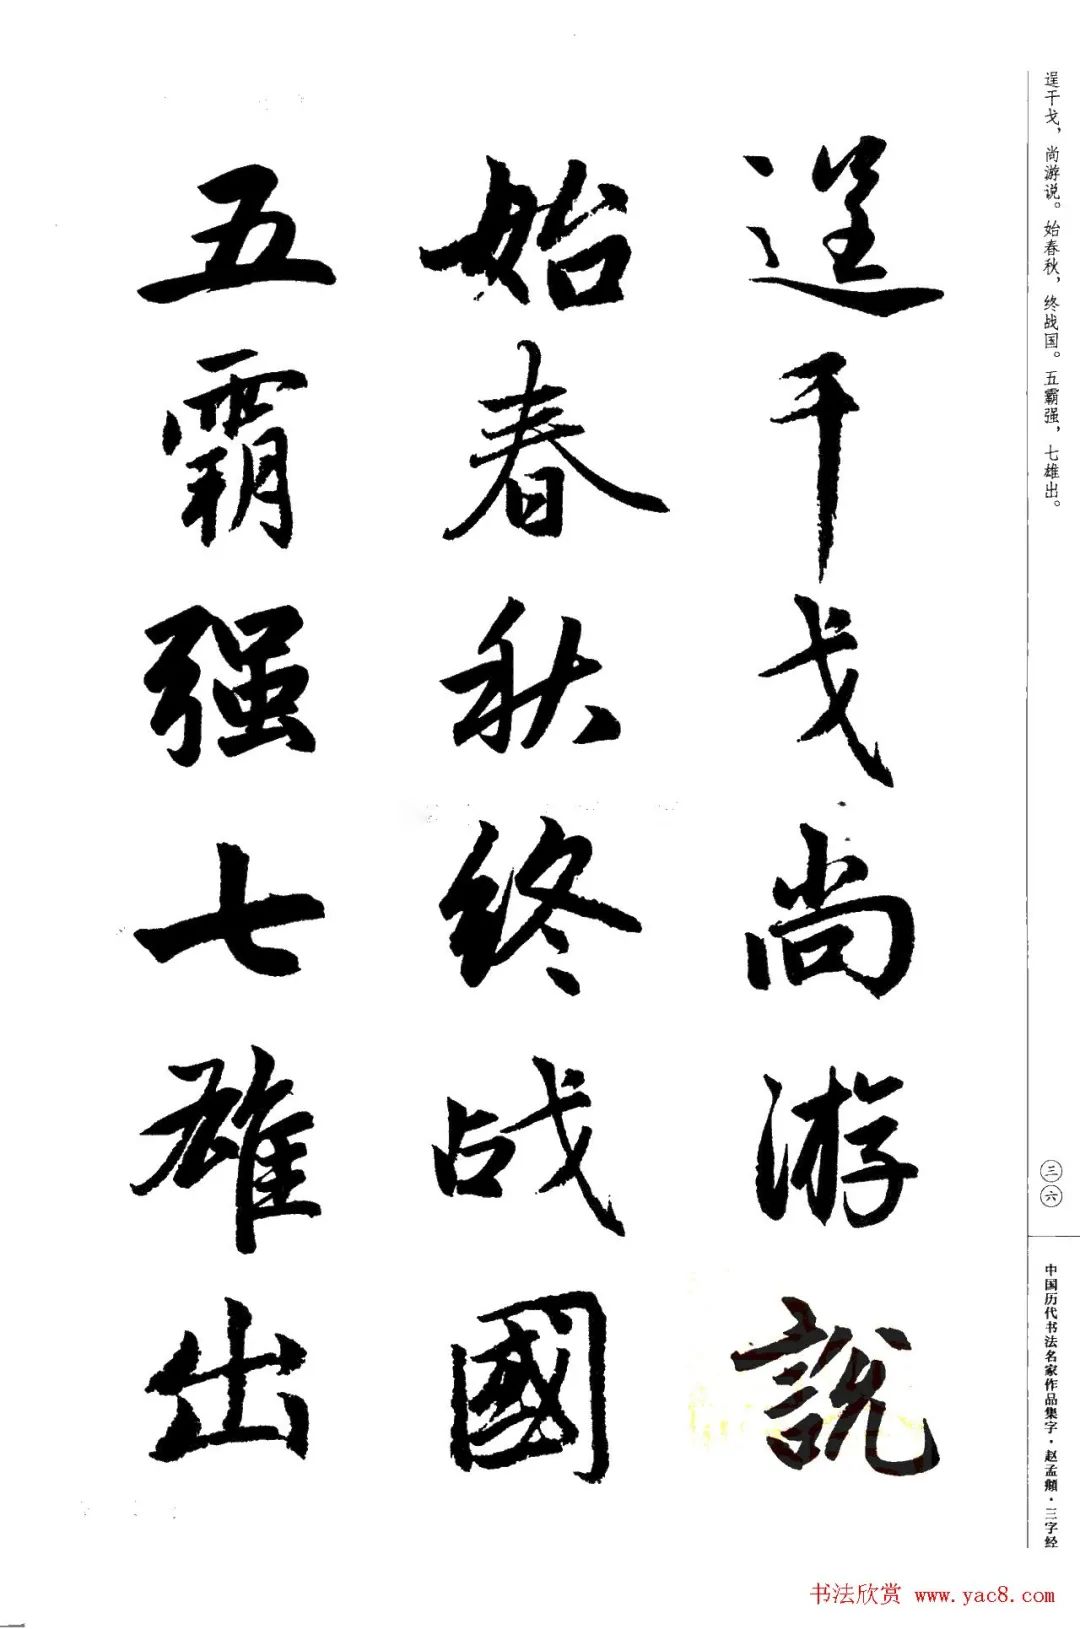 逞干戈尚游說
始春秋终战國
五霸强七雄出
逞干戈，尚游说。始春秋，终战国。五霸强，七雄出。
三六
中国历代书法名家作品集字·赵孟頫·三字经
书法欣赏 www.yac8.com